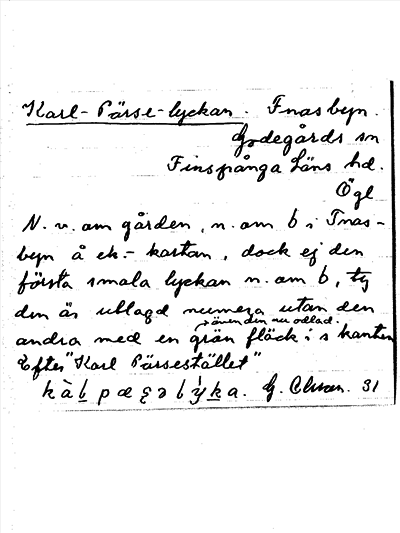 Karl-Pärse-lyckan. Fnasbyn.
Godegårds sn
Finspånga Läns hd.
Ögl
N. v. om gården, n. om b i Fnas-
byn å ek.- kartan, dock ej den
första smala lyckan n. om b, ty
den är utlagd numera utan den
även den nu odlad.
andra med en grön fläck i s kanten
Efter "Karl Pärsestället"
G. 31